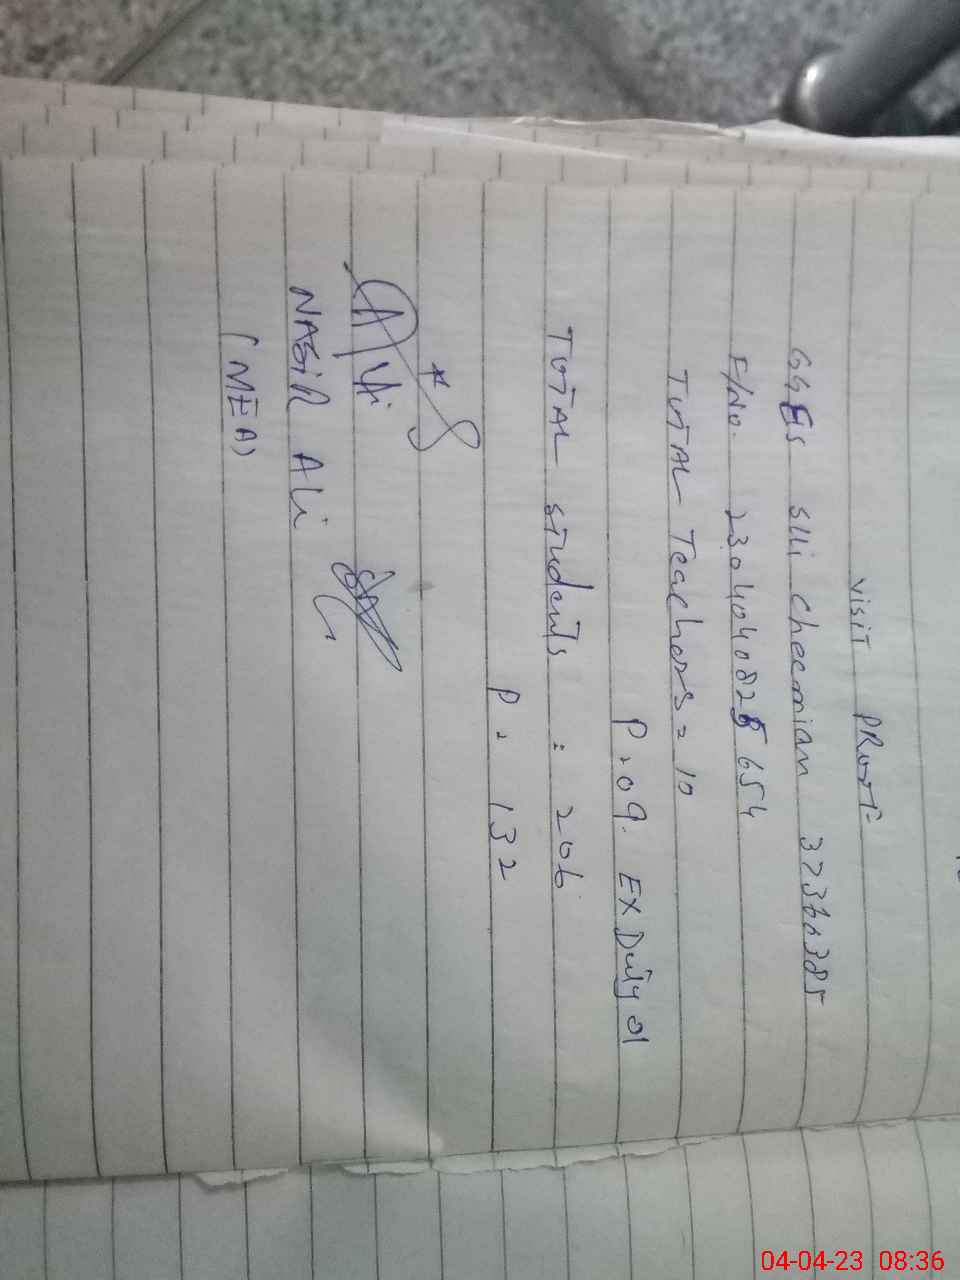 visit PRooF
GGES Slli cheemian 37360385
F/No. 230404082 5 654
TOTAL Teachers = 10
P. 09. EX Duty 01
TOTAL students : 206
P. 132
NASiR Ali
(MEA)
04-04-23 08:36